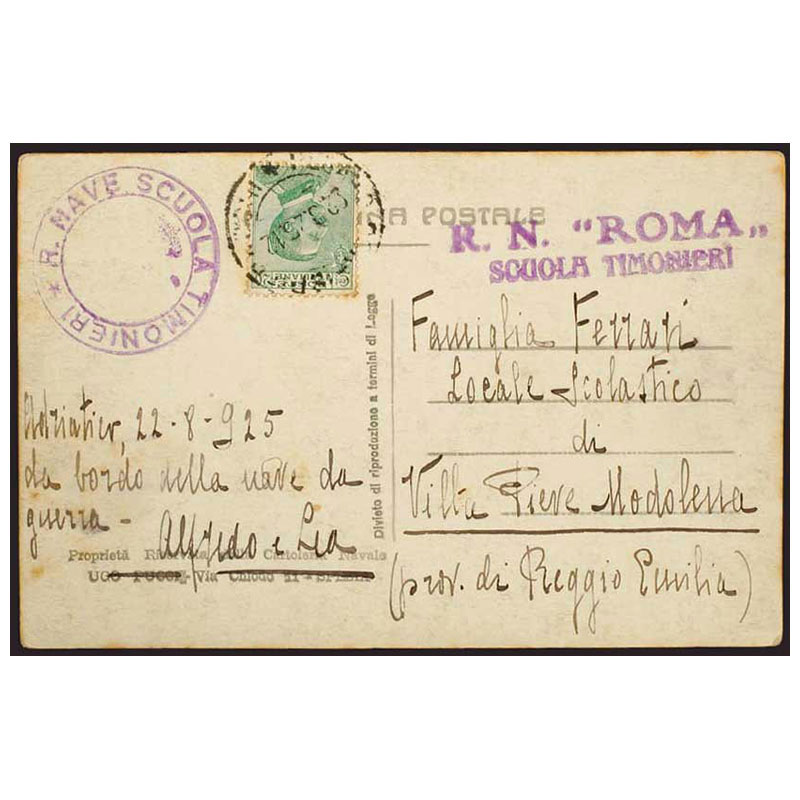 R. NAVE SCUOLA TIMONIERI
POSTALE
R. N. "ROMA"
SCUOLA TIMONIERI
Famiglia Ferrari
Locale Scolastico
di
Villa Pieve Modolena
(prov. di Reggio Emilia)
Divieto di riproduzione a termini di Legge
22-8-925
da bordo della nave da
guerra -
Alfredo e Lea
Proprietà Cartoleria Navale
UGO Via Chiodo